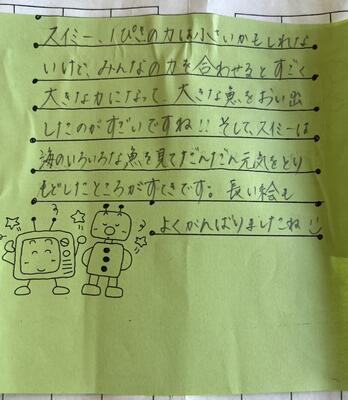 スイミー、1ぴきの力は小さいかもしれな
いけど、みんなの力を合わせるとすごく
大きな力になって、大きな魚をおい出
したのがすごいですね!! そして、スイミーは
海のいろいろな魚を見てだんだん元気をとり
もどしたところがすてきです。長い絵も
よくがんばりましたね